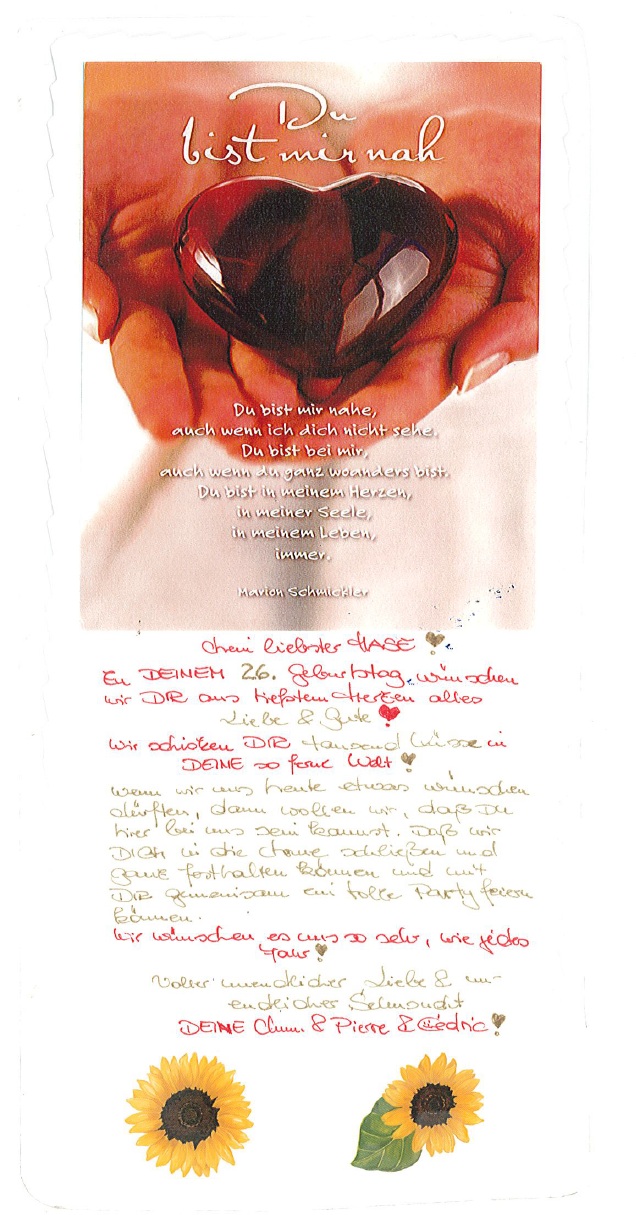 Du
bist mir nah
Du bist mir nahe,
auch wenn ich dich nicht sehe.
Du bist bei mir,
auch wenn du ganz woanders bist.
Du bist in meinem Herzen,
in meiner Seele,
in meinem Leben,
immer.
Marion Schmickler
Mein liebster HASE
Zu DEINEM 26. Geburtstag wünschen
wir DIR aus tiefstem Herzen alles
Liebe & Gute
Wir schicken DIR tausend Küsse in
DEINE so ferne Welt
Wenn wir uns heute etwas wünschen
dürften, dann wollen wir, daß Du
hier bei uns sein kannst. Daß wir
DICH in die Arme schließen und
ganz festhalten können und mit
DIR gemeinsam ein tolle Party feiern
können.
Wir wünschen es uns so sehr, wie jedes
Jahr
Voller unendlicher Liebe & un-
endlicher Sehnsucht
DEINE & Pierre & Cédric